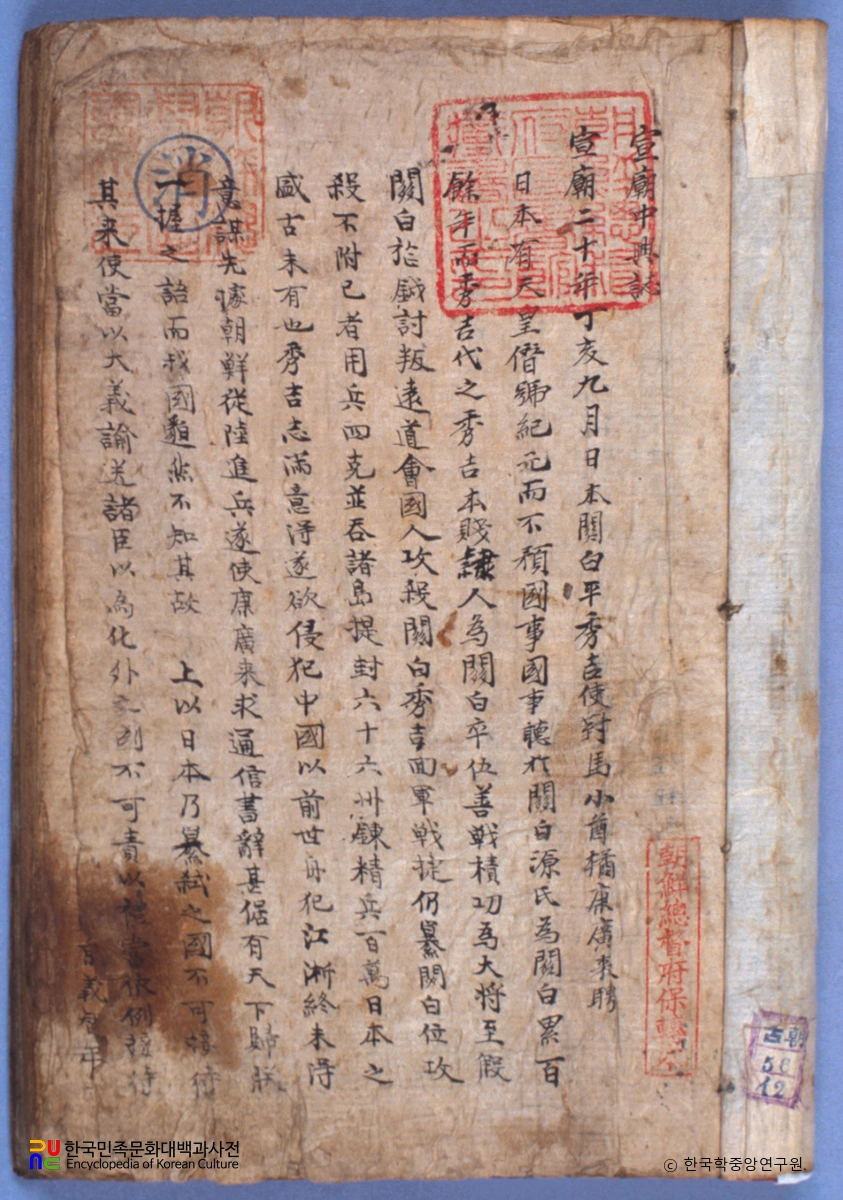 宣廟中興誌
宣廟二十年丁亥九月日本關白平秀吉使對馬小酋橘康廣來聘
日本有天皇僭號紀元而不預國事國事聽於關白源氏為關白累百
餘年而秀吉代之秀吉本賤隸人為關白卒伍善戰積功為大將至假
關白於鉞討叛遠道會國人攻殺關白秀吉回軍戰捷仍簒關白位攻
殺不附己者用兵四克並吞諸島提封六十六州鍊精兵百萬日本之
盛古未有也秀吉志滿意得遂欲侵犯中國以前世舟犯江淅終未得
意謀先據朝鮮從陸進兵遂使康廣來求通信書辭甚倨有天下歸朕
一握之語而我國邈然不知其故 上以日本乃簒弑之國不可接待
其来使當以大義諭送諸臣以為化外之國不可責以禮當依例接待
消
朝鮮總督府保轉本
古朝
50
12
한국민족문화대백과사전
Encyclopedia of Korean Culture
© 한국학중앙연구원